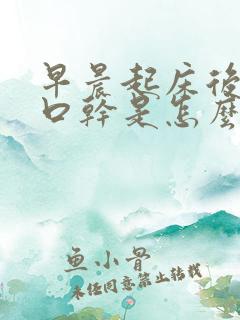 早晨起床後
口幹是怎麼
鱼小骨
未经同意禁止转载